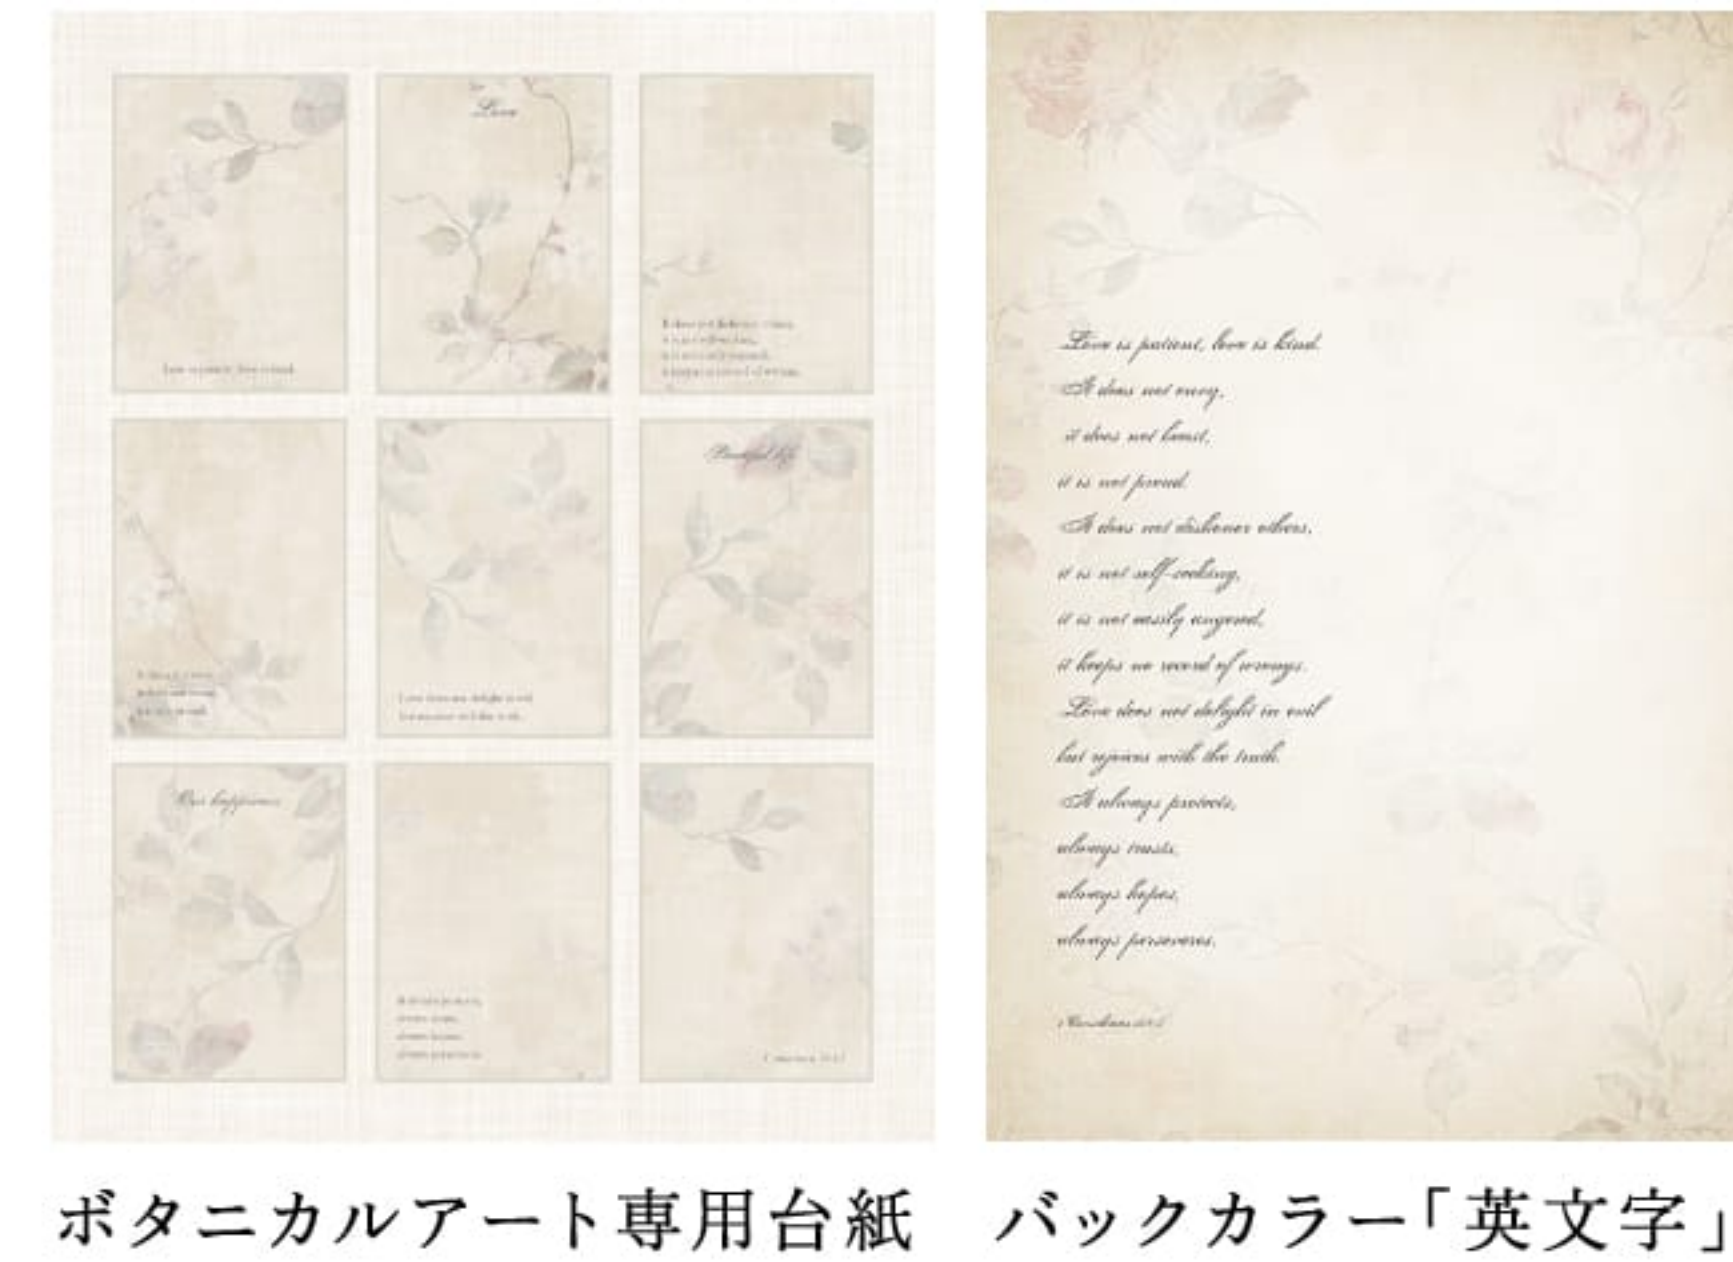 Love
Love is patient, love is kind.
It does not dishonor others,
it is not self-seeking,
it is not easily angered,
it keeps no record of wrongs.
It does not envy,
it does not boast,
it is not proud.
Love does not delight in evil
but rejoices with the truth.
Beautiful life
Our happiness
It always protects,
always trusts,
always hopes,
always perseveres.
ボタニカルアート専用台紙
Love is patient, love is kind.
It does not envy,
it does not boast,
it is not proud.
It does not dishonor others,
it is not self-seeking,
it is not easily angered,
it keeps no record of wrongs.
Love does not delight in evil
but rejoices with the truth.
It always protects,
always trusts,
always hopes,
always perseveres.
バックカラー「英文字」